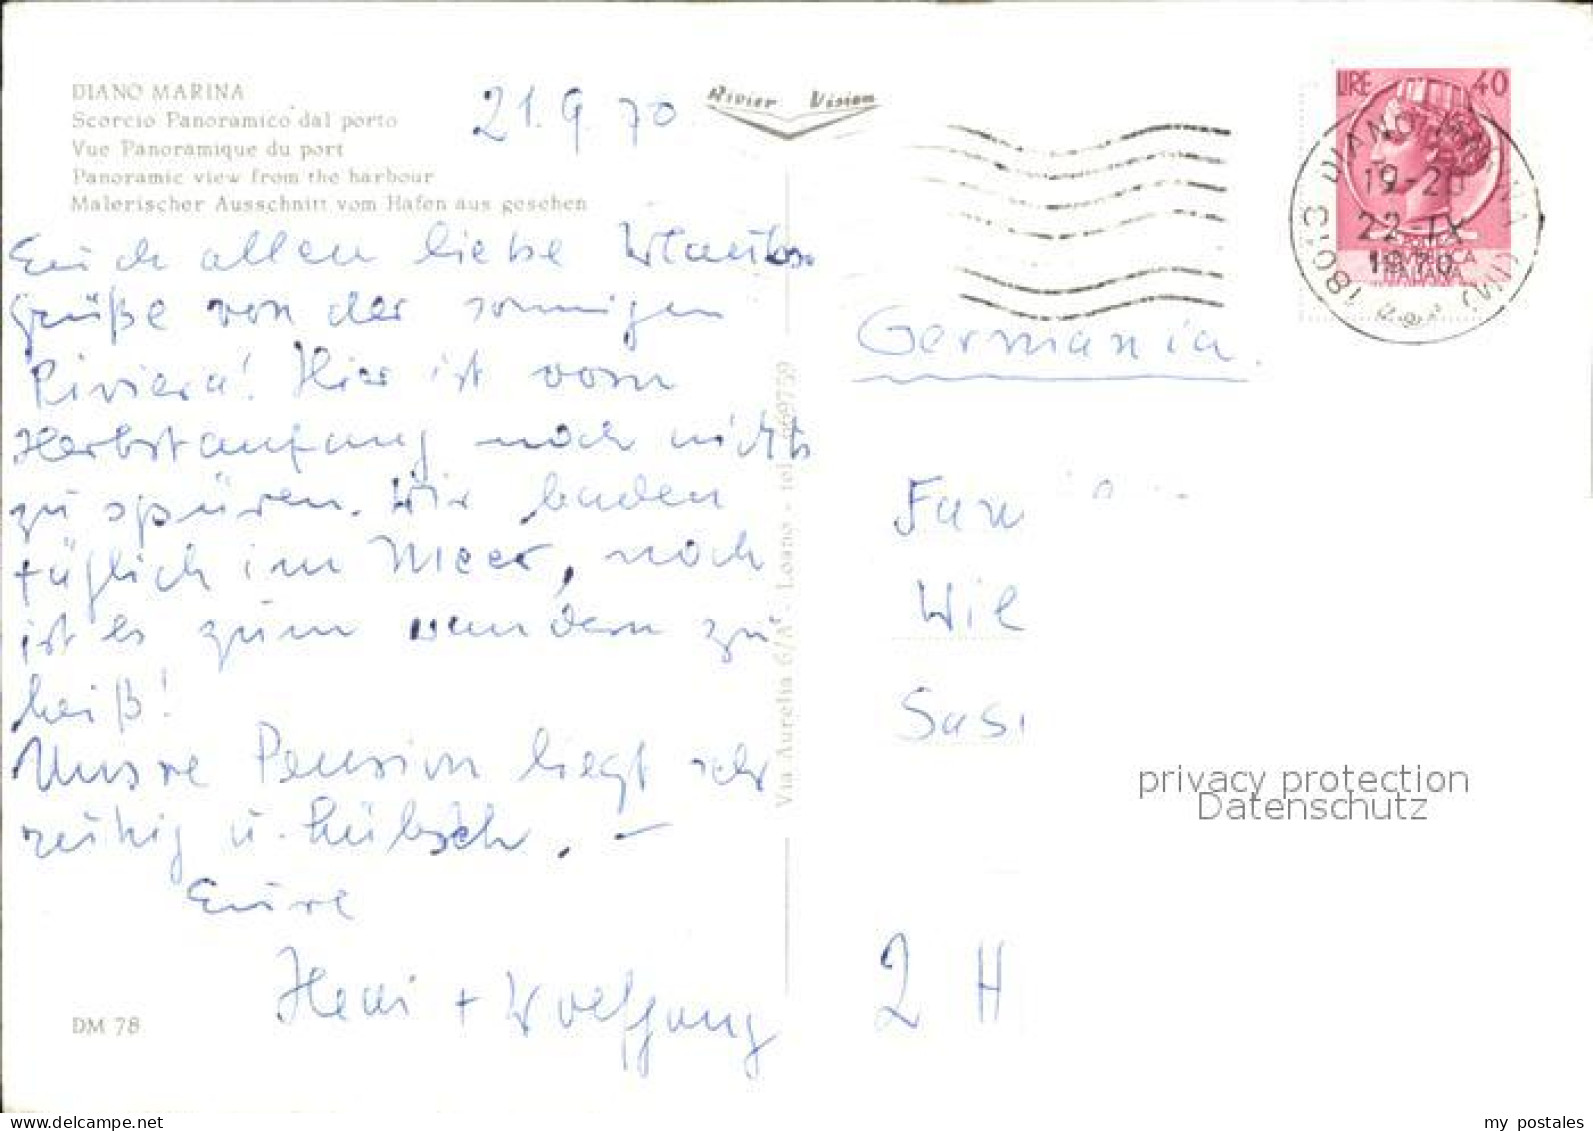 DIANO MARINA
Scorcio Panoramico dal porto
Vue Panoramique du port
Panoramic view from the harbour
Malerischer Ausschnitt vom Hafen aus gesehen
21.9.70
Rivier Vision
LIRE 40
18013 DIANO MARINA (IM)
19-20
22-IX
1970
Euch allen liebe Urlaubs
grüße von der sonnigen
Riviera! Hier ist vom
Herbstanfang noch nichts
zu spüren. Wir baden
täglich im Meer, noch
ist es zum wandern zu
heiß!
Unsre Pension liegt sehr
ruhig u. hübsch. –
Eure
Hedi + Wolfgang
DM 78
Via Aurelia 6/A - Loano - tel. 669759
Germania.
Fam
Wil
Sus
2 H
privacy protection
Datenschutz
my postales